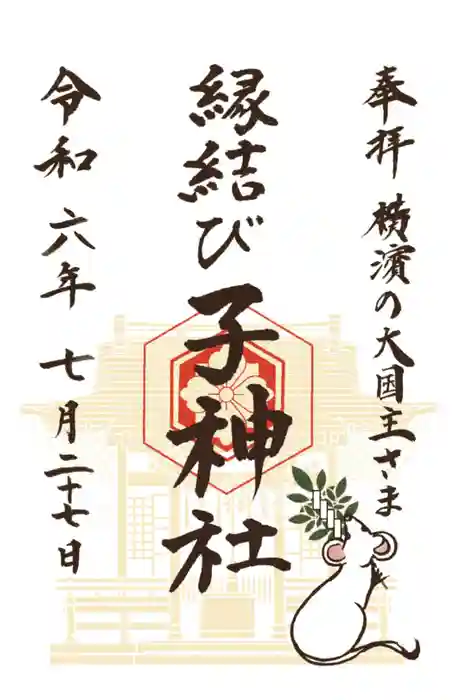 奉拝 横濱の大国主さま
縁結び 子神社
令和 六年 七月二十七日